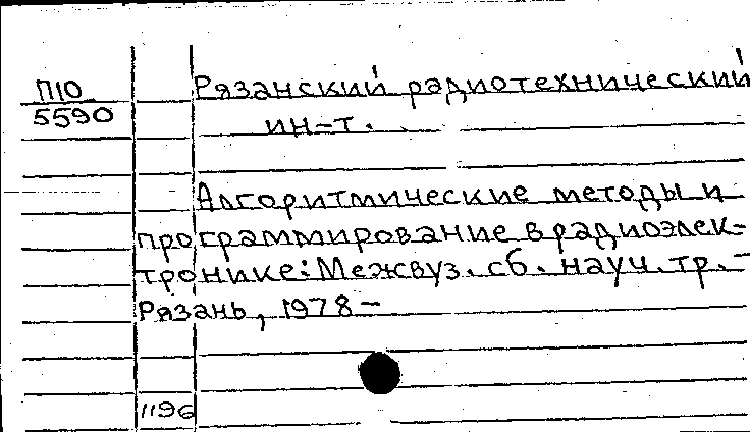 П10
5590
Рязанский радиотехнический
ин-т.
Алгоритмические методы и
программирование в радиоэлек-
тронике: Межвуз. сб. науч. тр. -
Рязань, 1978 -
1196